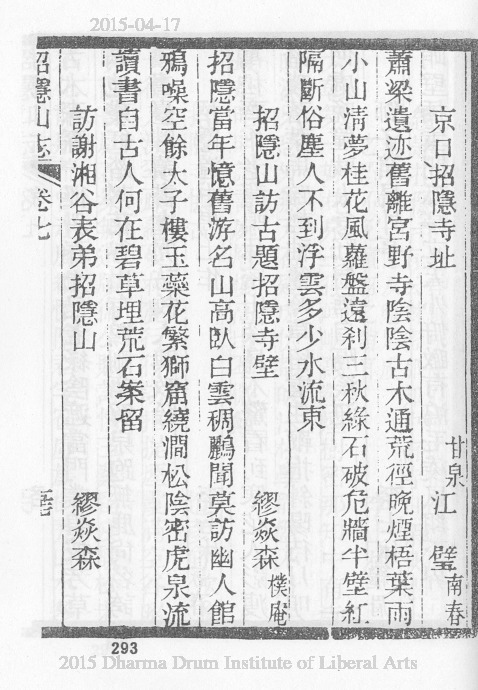 2015-04-17
京口招隱寺址 甘泉江 璧南春
蕭梁遺迹舊離宮野寺陰陰古木通荒徑晚煙梧葉雨
小山清夢桂花風蘿盤遠刹三秋綠石破危牆半壁紅
隔斷俗塵人不到浮雲多少水流東
招隱山訪古題招隱寺壁 繆焱森樸庵
招隱當年憶舊游名山高臥白雲稠鸝聞莫訪幽人館
鴉噪空餘太子樓玉蘂花繁獅窟繞澗松陰密虎泉流
讀書自古人何在碧草埋荒石案留
訪謝湘谷表弟招隱山 繆焱森
招隱山志 卷七
293
2015 Dharma Drum Institute of Liberal Arts